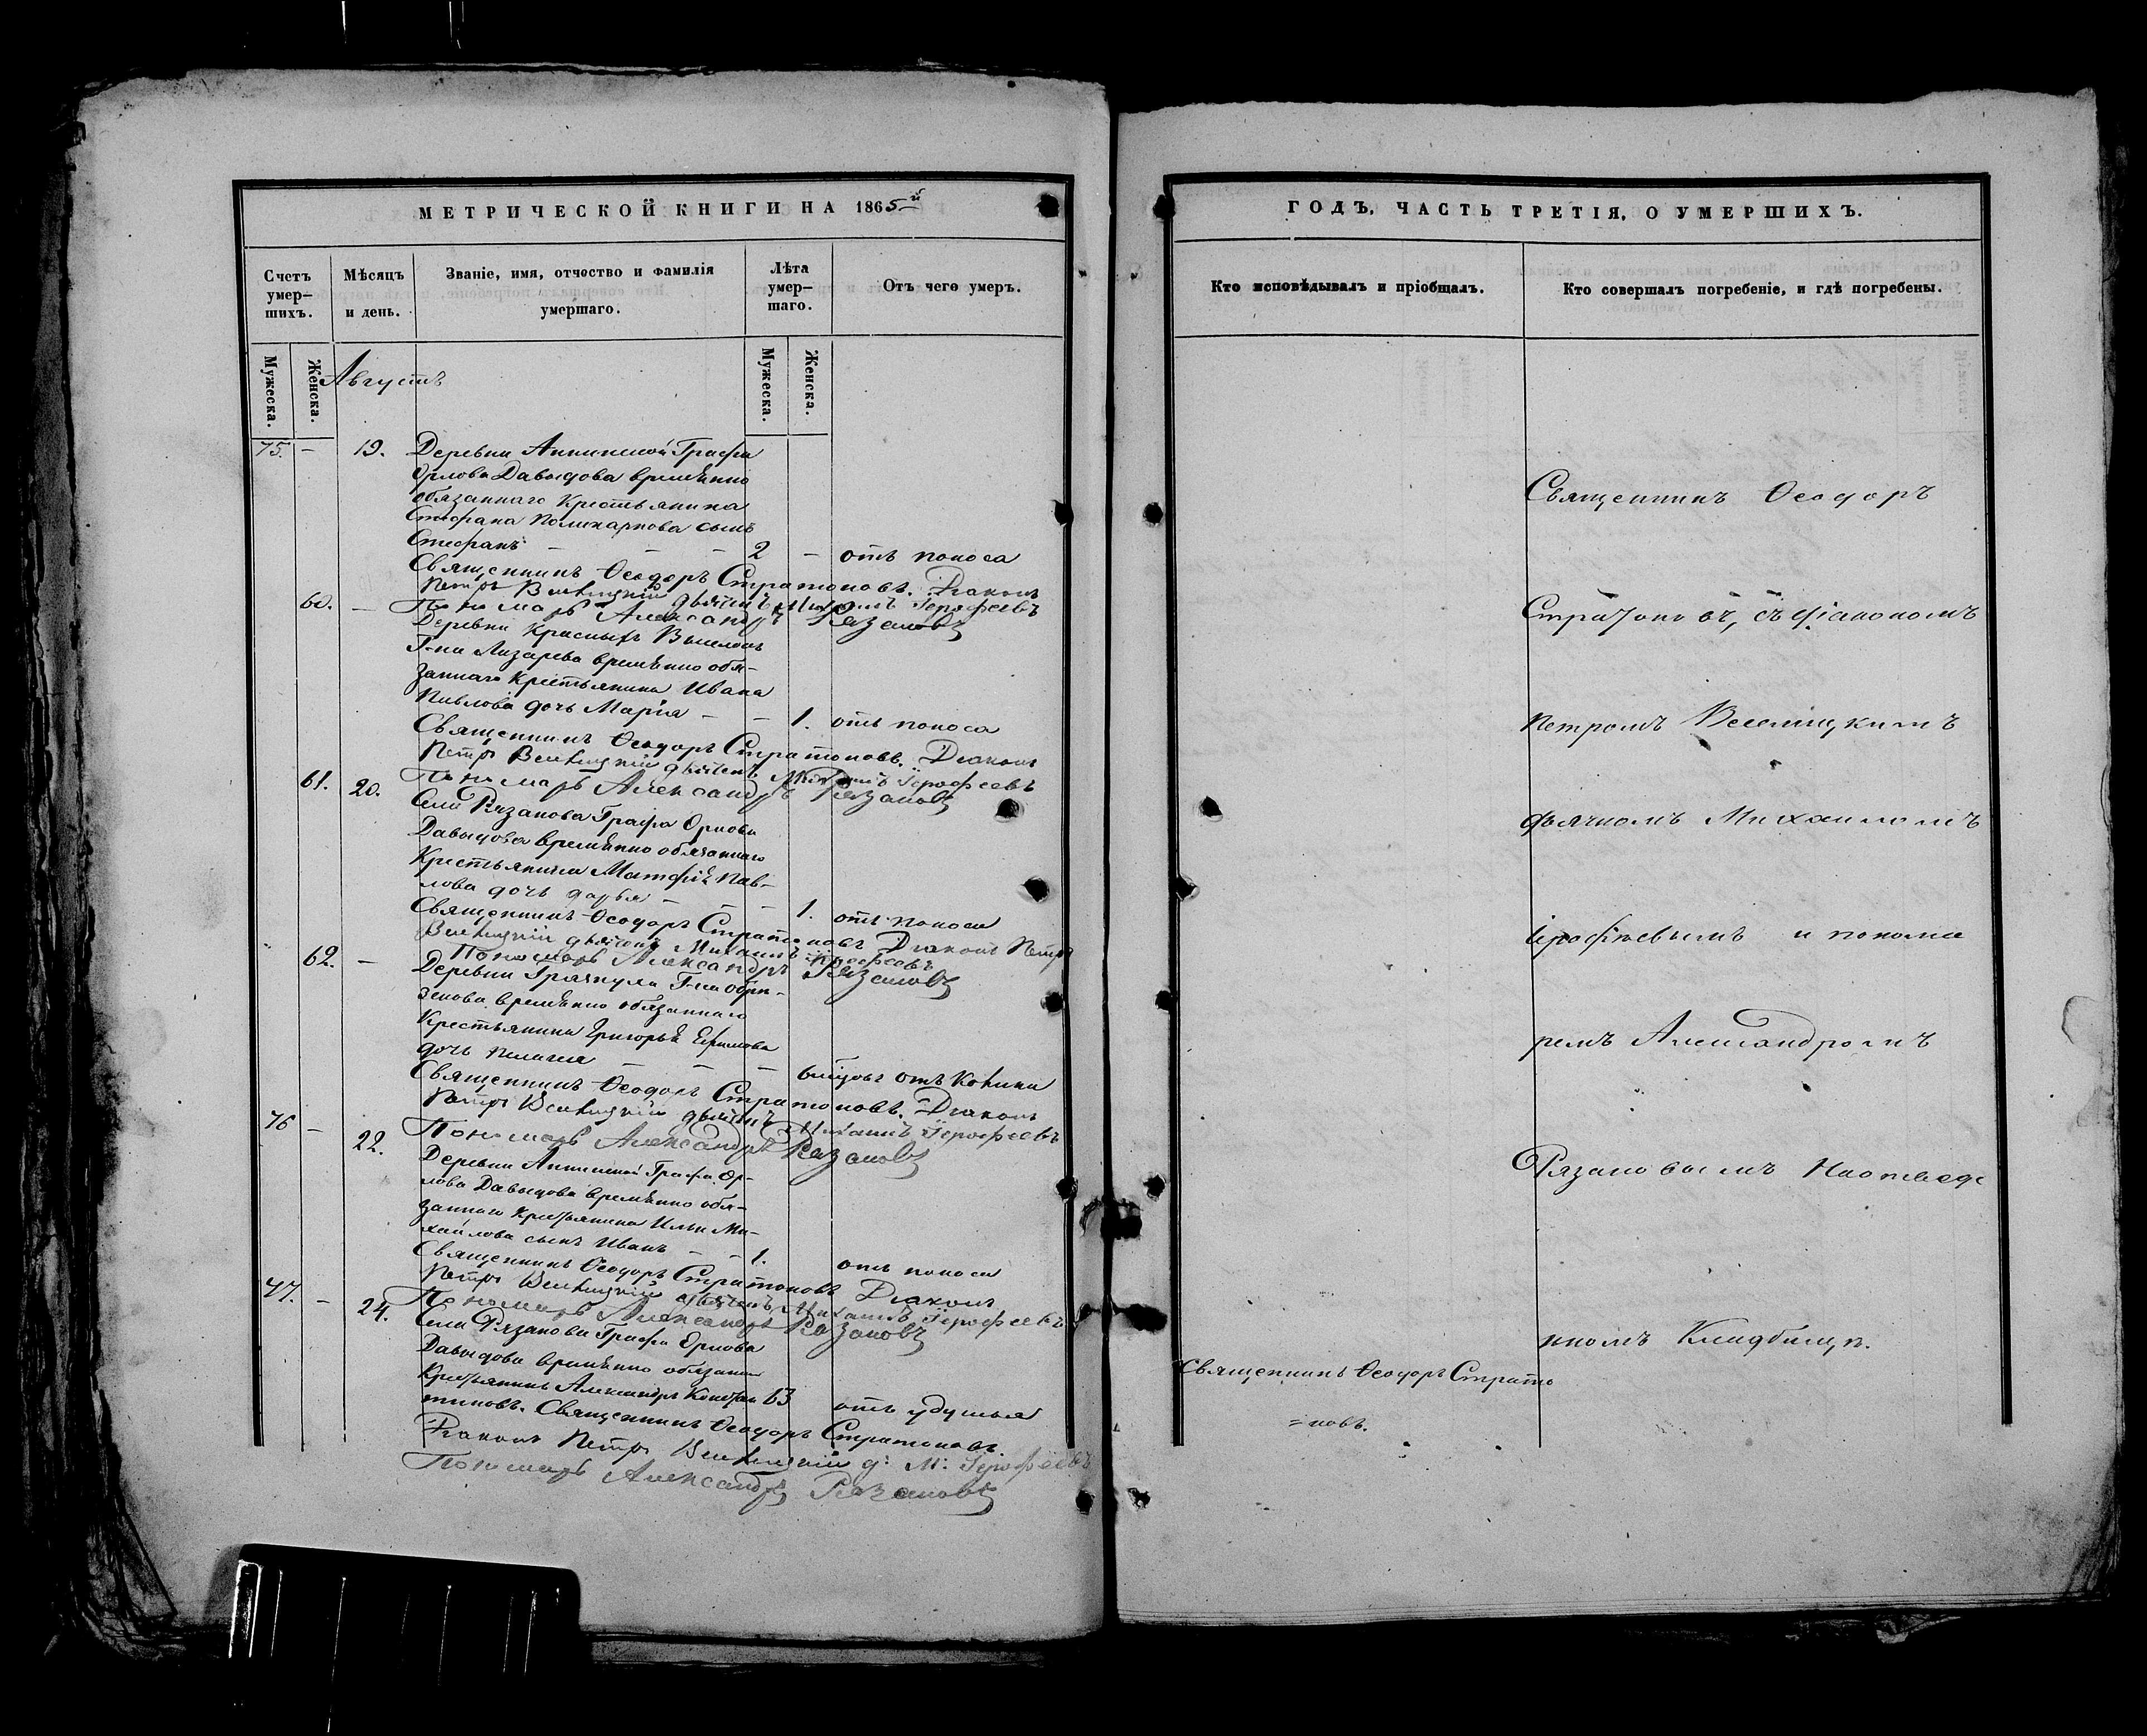 МЕТРИЧЕСКОЙ КНИГИ НА 1865й
Счетъ умер–шихъ.
Мѣсяцъ и день.
Званіе, имя, отчество и фамилія умершаго.
Лѣта умер–шаго.
Отъ чего умеръ.
Мужеска.
Женска.
Мужеска.
Женска.
Августъ
75. – 19. Деревни Аннинской Графа
Орлова Давыдова временно
обязаннаго Крестьянина
Стефана Поликарпова сынъ
Стефанъ – – – 2 – отъ поноса
Священникъ Ѳеодоръ Стратоновъ. Діаконъ
Петръ дьячекъ Михаилъ Іерофеевъ
60. – Пономарь Александръ Рязановъ
Деревни Красныхъ Выселокъ
Г-на Лазарева временно обя–
заннаго Крестьянина Ивана
Павлова дочь Марія – – 1. отъ поноса
Священникъ Ѳеодоръ Стратоновъ. Діаконъ
Петръ дьячекъ Михаилъ Іерофеевъ
61. 20. Пономарь Александръ Рязановъ
Села Рязанова Графа Орлова
Давыдова временно обязаннаго
Крестьянина Матфія Пав–
лова дочь Дарья – – 1. отъ поноса
Священникъ Ѳеодоръ Стратоновъ Діаконъ Петръ
дьячекъ Михаилъ Іерофеевъ
62. – Пономарь Александръ Рязановъ
Деревни Г-на
временно обязаннаго
Крестьянина Григорья Ефимова
дочь Пелагея – – –
Священникъ Ѳеодоръ Стратоновъ. Діаконъ
Петръ дьячекъ Михаилъ Іерофеевъ
76 – 22. Пономарь Александръ Рязановъ
Деревни Аннинской Графа Ор–
лова Давыдова временно обя–
заннаго Крестьянина Ильи Ми–
хайлова сынъ Иванъ – – 1. отъ поноса
Священникъ Ѳеодоръ Стратоновъ Діаконъ
Петръ дьячекъ Михаилъ Іерофеевъ
77. – 24. Пономарь Александръ Рязановъ
Села Рязанова Графа Орлова
Давыдова временно обязанный
Крестьянинъ Александръ Констан 63
тиновъ. отъ удушья
Священникъ Ѳеодоръ Стратоновъ.
Діаконъ Петръ д: М: Іерофеевъ
Пономарь Александръ Рязановъ
ГОДЪ, ЧАСТЬ ТРЕТІЯ, О УМЕРШИХЪ.
Кто исповѣдывалъ и пріобщалъ.
Кто совершалъ погребеніе, и гдѣ погребены.
Священникъ Ѳеодоръ
Стратоновъ, съ діакономъ
Петромъ
дьячкомъ Михаиломъ
Іерофѣевымъ и понома
ремъ Александромъ
Рязановымъ
Кладбищѣ.
Священникъ Ѳеодоръ Страто
=новъ.